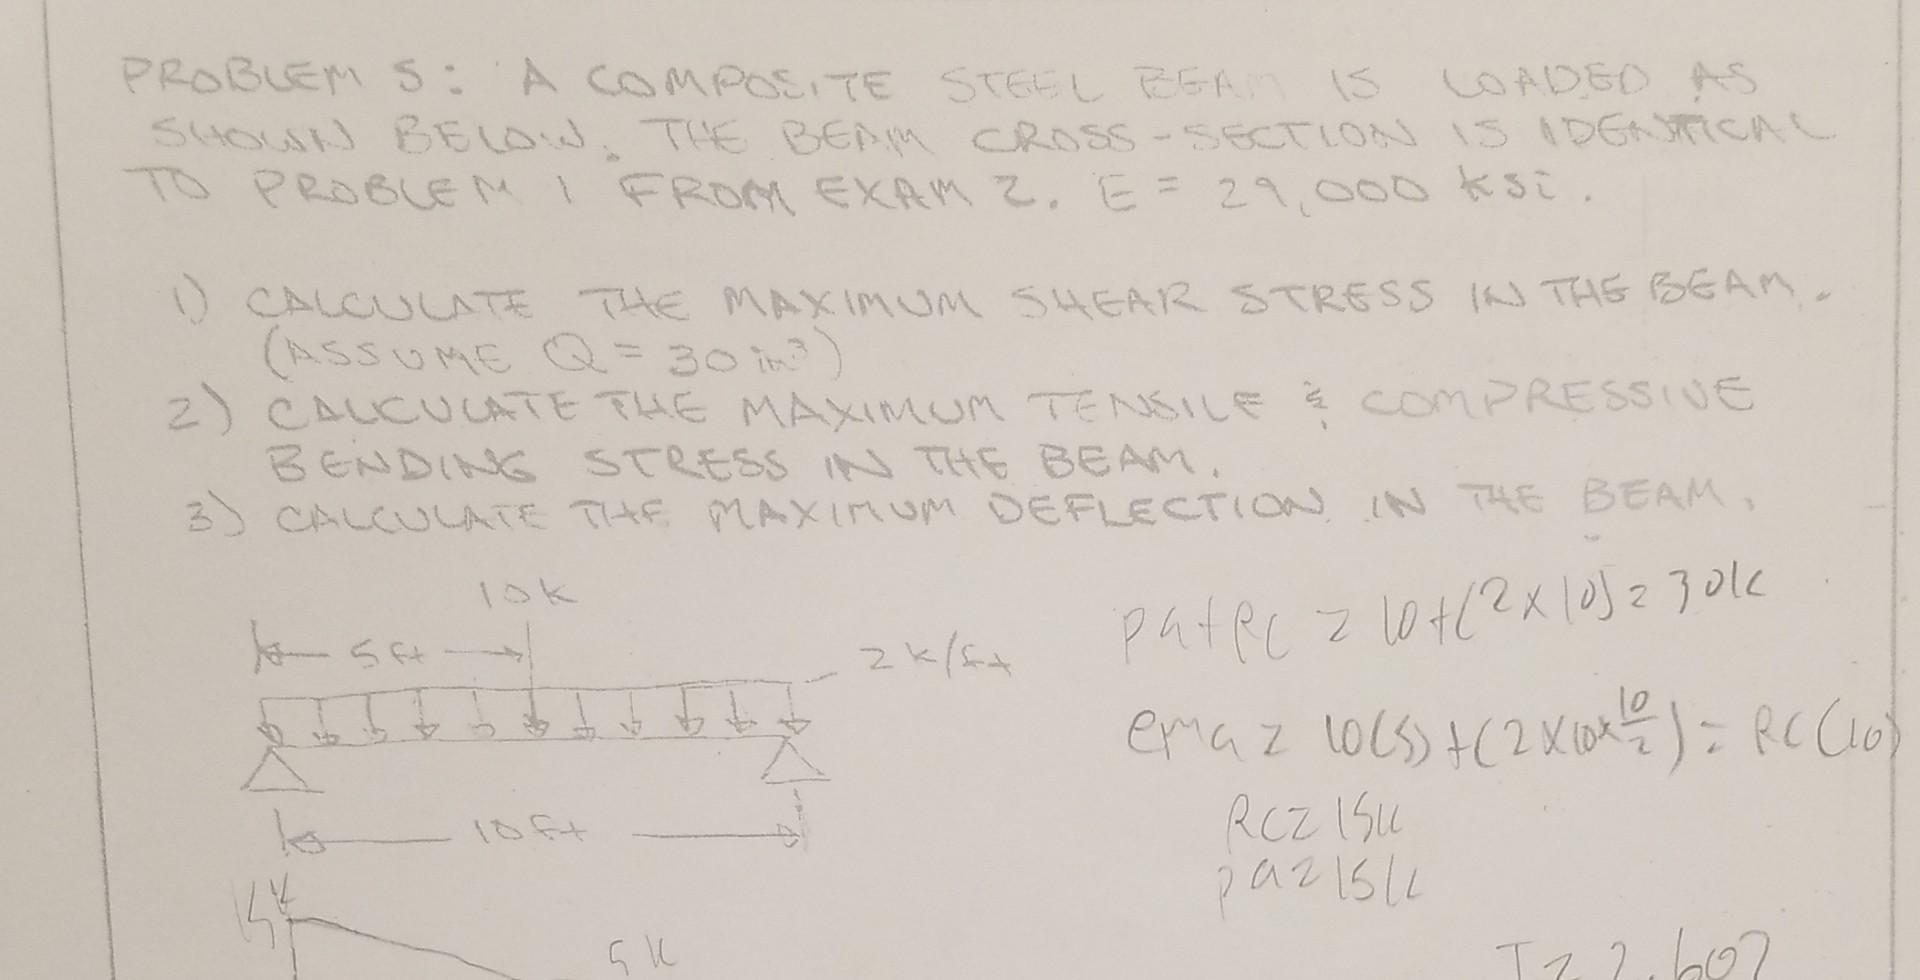 PROBLEM 5: A COMPOSITE STEEL BEAM IS LOADED AS
SHOWN BELOW. THE BEAM CROSS-SECTION IS IDENTICAL
TO PROBLEM 1 FROM EXAM 2. E = 29,000 ksi.
1) CALCULATE THE MAXIMUM SHEAR STRESS IN THE BEAM.
(ASSUME Q = 30 in³)
2) CALCULATE THE MAXIMUM TENSILE & COMPRESSIVE
BENDING STRESS IN THE BEAM.
3) CALCULATE THE MAXIMUM DEFLECTION IN THE BEAM.
10k
5ft
2k/ft
10ft
Pa+Rc = 10+(2x10) = 30k
ema = 10(5)+(2x10x10/2) = Rc(10)
Rc = 15k
Pa = 15k
15k
5k